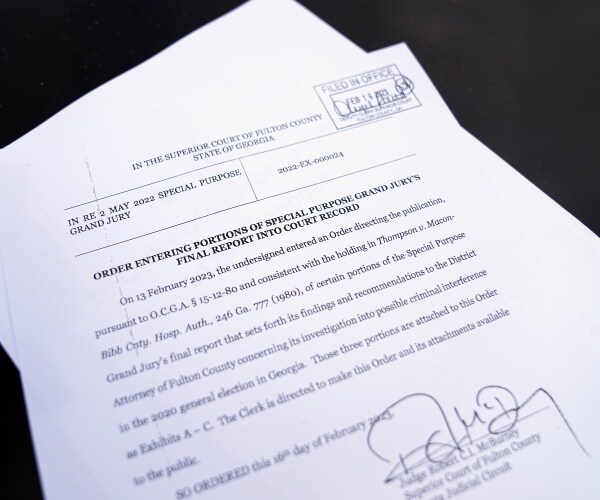 FILED IN OFFICE
FEB 16 2023
DEPUTY CLERK SUPERIOR COURT
FULTON COUNTY, GA
IN THE SUPERIOR COURT OF FULTON COUNTY
STATE OF GEORGIA
IN RE 2 MAY 2022 SPECIAL PURPOSE
GRAND JURY
2022-EX-000024
ORDER ENTERING PORTIONS OF SPECIAL PURPOSE GRAND JURY'S
FINAL REPORT INTO COURT RECORD
On 13 February 2023, the undersigned entered an Order directing the publication,
pursuant to O.C.G.A. § 15-12-80 and consistent with the holding in Thompson v. Macon-
Bibb Cnty. Hosp. Auth., 246 Ga. 777 (1980), of certain portions of the Special Purpose
Grand Jury's final report that sets forth its findings and recommendations to the District
Attorney of Fulton County concerning its investigation into possible criminal interference
in the 2020 general election in Georgia. Those three portions are attached to this Order
as Exhibits A – C. The Clerk is directed to make this Order and its attachments available
to the public.
SO ORDERED this 16th day of February 2023.
Judge Robert C.I. McBurney
Superior Court of Fulton County
Judicial Circuit